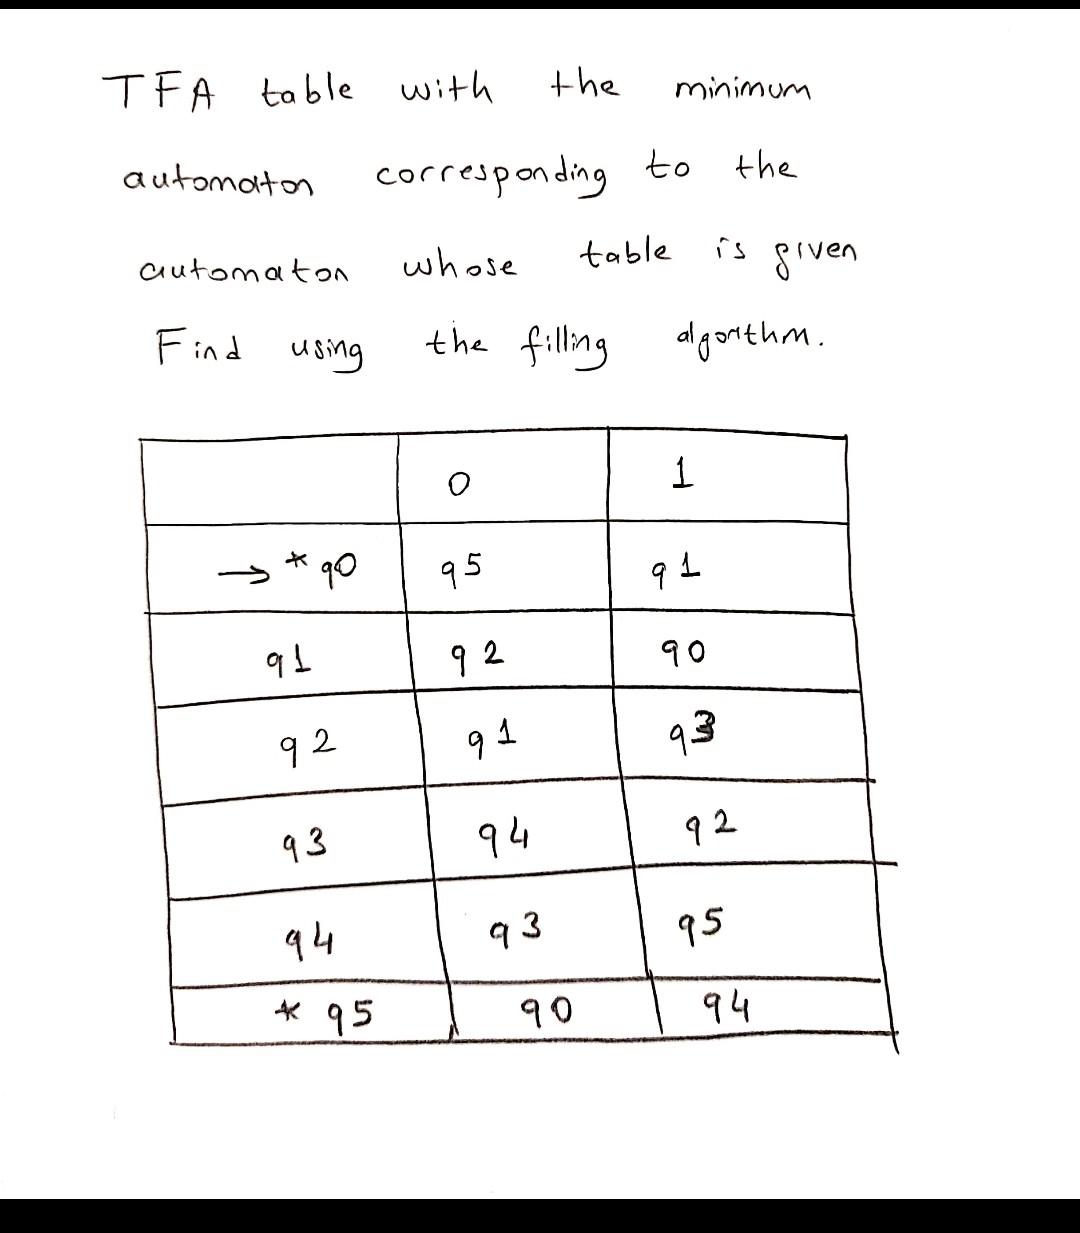 TFA table with the minimum
automaton corresponding to the
automaton whose table is given
Find using the filling algorithm.
0 1
→ * q0 q5 q1
q1 q2 q0
q2 q1 q3
q3 q4 q2
q4 q3 q5
* q5 q0 q4